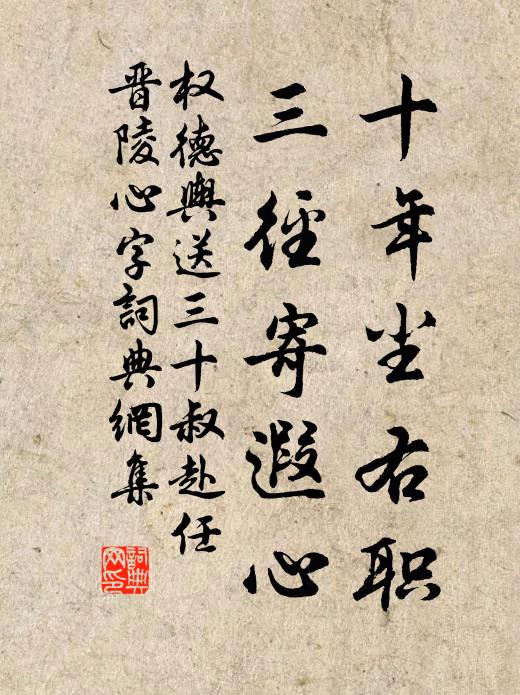 十年尘右职
三径寄遐心
权德舆送三十叔赴任
晋陵心字詞典網集
詞典
网印